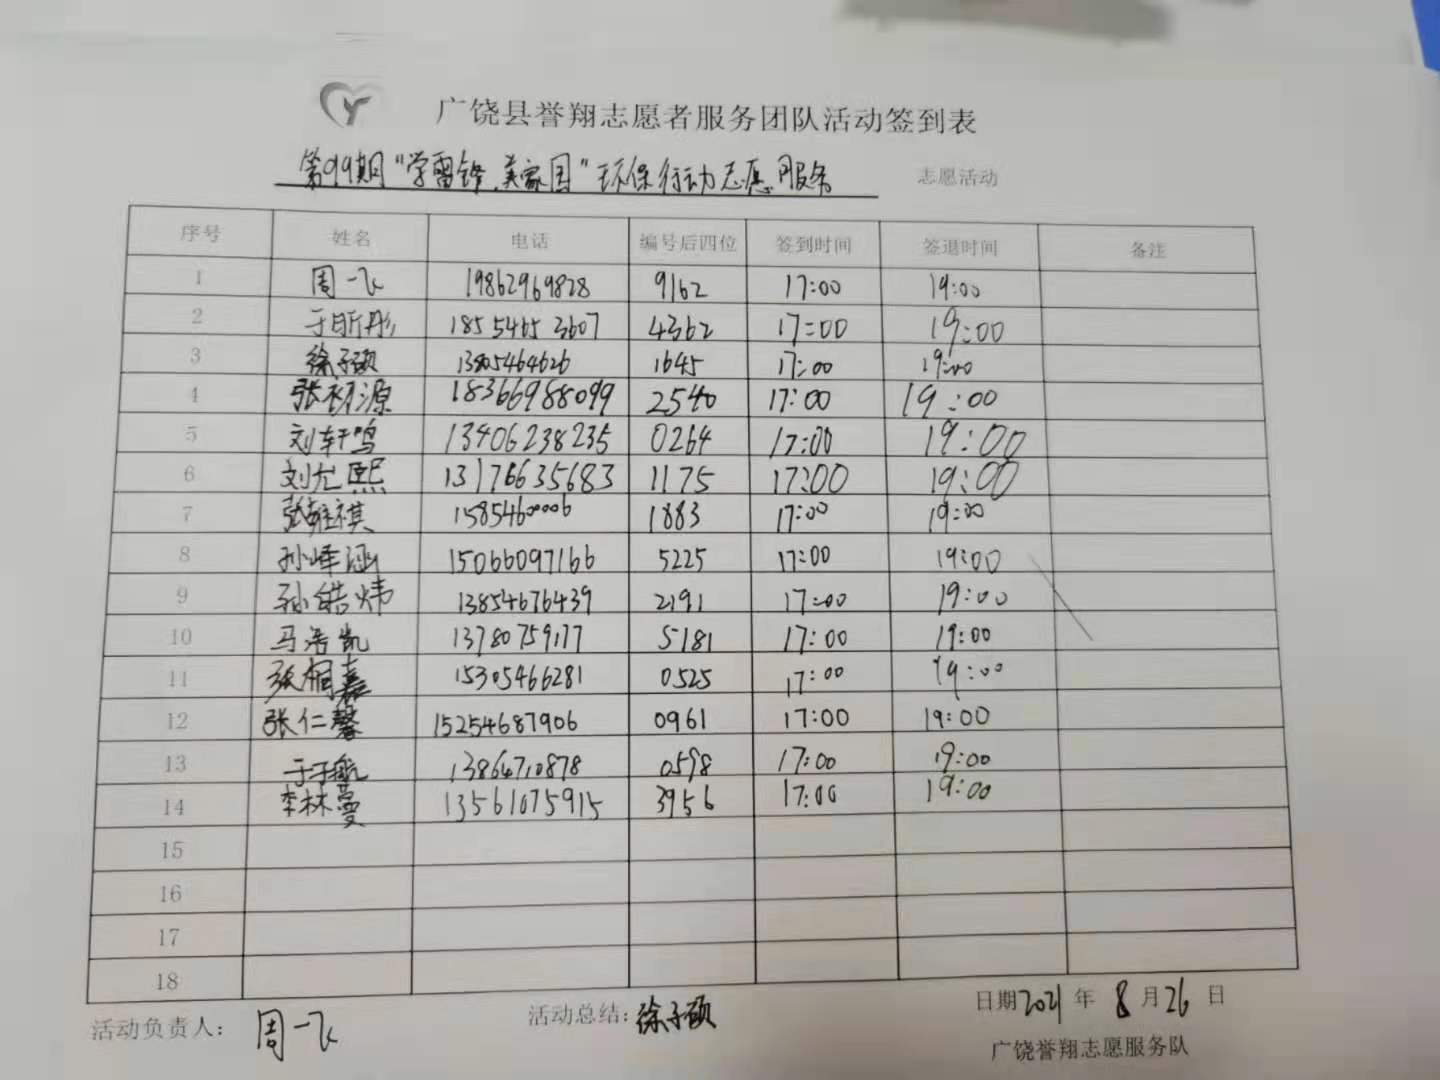 广饶县誉翔志愿者服务团队活动签到表
第99期“学雷锋,美家园”环保行动志愿服务 志愿活动
序号 姓名 电话 编号后四位 签到时间 签退时间 备注
1 周一飞 19862969828 9162 17:00 19:00
2 于昕彤 18554653607 4362 17:00 19:00
3 徐子硕 13805464626 1645 17:00 19:00
4 张初源 18366988099 2540 17:00 19:00
5 刘轩鸣 13406238235 0264 17:00 19:00
6 刘尤熙 13176635683 1175 17:00 19:00
7 祺 15854600006 1883 17:00 19:00
8 孙峰涵 15066097166 5225 17:00 19:00
9 孙皓炜 13854676439 2191 17:00 19:00
10 马浩凯 13780759177 5181 17:00 19:00
11 张桐嘉 15305466281 0525 17:00 19:00
12 张仁馨 15254687906 0961 17:00 19:00
13 于子航 13864710878 0598 17:00 19:00
14 李林蔓 13561075915 3956 17:00 19:00
15
16
17
18
活动负责人: 周一飞 活动总结: 徐子硕 日期2021年8月26日
广饶誉翔志愿服务队